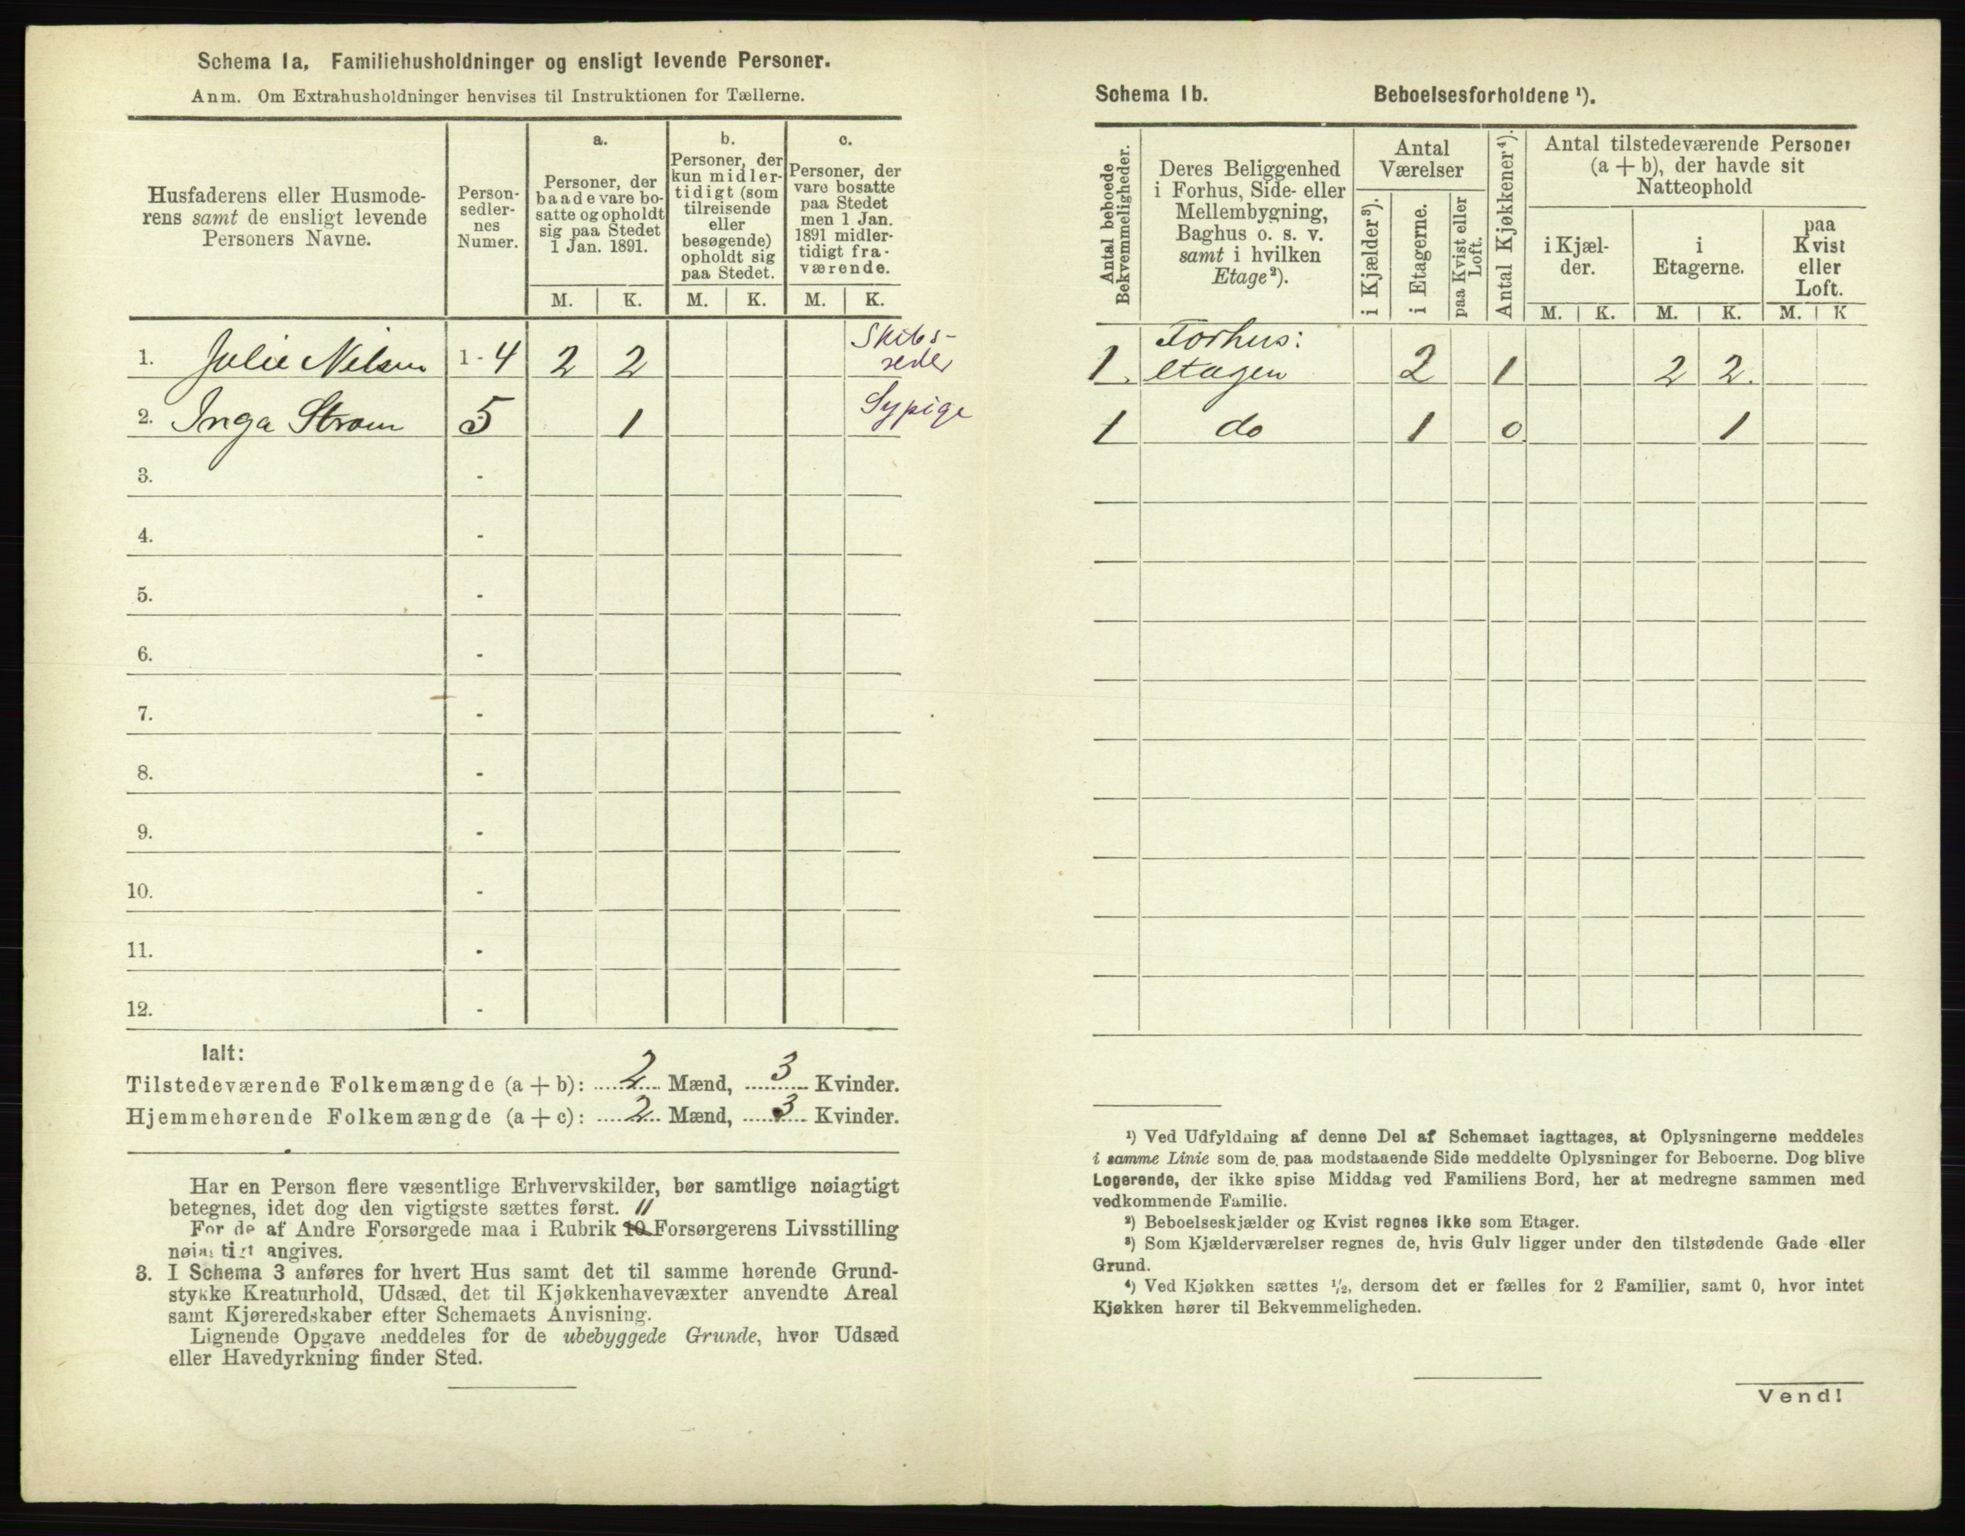 Schema 1a. Familiehusholdninger og ensligt levende Personer.
Anm. Om Extrahusholdninger henvises til Instruktionen for Tællerne.
Husfaderens eller Husmode-
rens samt de ensligt levende
Personers Navne.
Person-
sedler-
nes
Numer.
a.
Personer, der
baade vare bo-
satte og opholdt
sig paa Stedet
1 Jan. 1891.
b.
Personer, der
kun midler-
tidigt (som
tilreisende
eller
besøgende)
opholdt sig
paa Stedet.
c.
Personer, der
vare bosatte
paa Stedet
men 1 Jan.
1891 midler-
tidigt fra-
værende.
M. K. M. K. M. K.
1. Julie Nilsen 1-4 2 2 Skibs-
reder
2. Inga Strøm 5 1 Sypige
3. -
4. -
5. -
6. -
7. -
8. -
9. -
10. -
11. -
12. -
Ialt:
Tilstedeværende Folkemængde (a + b): 2 Mænd, 3 Kvinder.
Hjemmehørende Folkemængde (a + c): 2 Mænd, 3 Kvinder.
Har en Person flere væsentlige Erhvervskilder, bør samtlige nøiagtigt
betegnes, idet dog den vigtigste sættes først. 11
For de af Andre Forsørgede maa i Rubrik 10 Forsørgerens Livsstilling
nøiagtigt angives.
3. I Schema 3 anføres for hvert Hus samt det til samme hørende Grund-
stykke Kreaturhold, Udsæd, det til Kjøkkenhavevæxter anvendte Areal
samt Kjøreredskaber efter Schemaets Anvisning.
Lignende Opgave meddeles for de ubebyggede Grunde, hvor Udsæd
eller Havedyrkning finder Sted.
Schema 1b. Beboelsesforholdene ¹).
Antal beboede
Bekvemmeligheder.
Deres Beliggenhed
i Forhus, Side- eller
Mellembygning,
Baghus o. s. v.
samt i hvilken
Etage ²).
Antal
Værelser
i Kjælder ³).
i Etagerne.
paa Kvist eller
Loft.
Antal Kjøkkener ⁴).
Antal tilstedeværende Personer
(a + b), der havde sit
Natteophold
i Kjæl-
der.
i
Etagerne.
paa
Kvist
eller
Loft.
M. K. M. K. M. K
Forhus:
1. etagen 2 1 2 2.
1 do 1 0 1
¹) Ved Udfyldning af denne Del af Schemaet iagttages, at Oplysningerne meddeles
i samme Linie som de paa modstaaende Side meddelte Oplysninger for Beboerne. Dog blive
Logerende, der ikke spise Middag ved Familiens Bord, her at medregne sammen med
vedkommende Familie.
²) Beboelseskjælder og Kvist regnes ikke som Etager.
³) Som Kjælderværelser regnes de, hvis Gulv ligger under den tilstødende Gade eller
Grund.
⁴) Ved Kjøkken sættes ½, dersom det er fælles for 2 Familier, samt 0, hvor intet
Kjøkken hører til Bekvemmeligheden.
Vend!